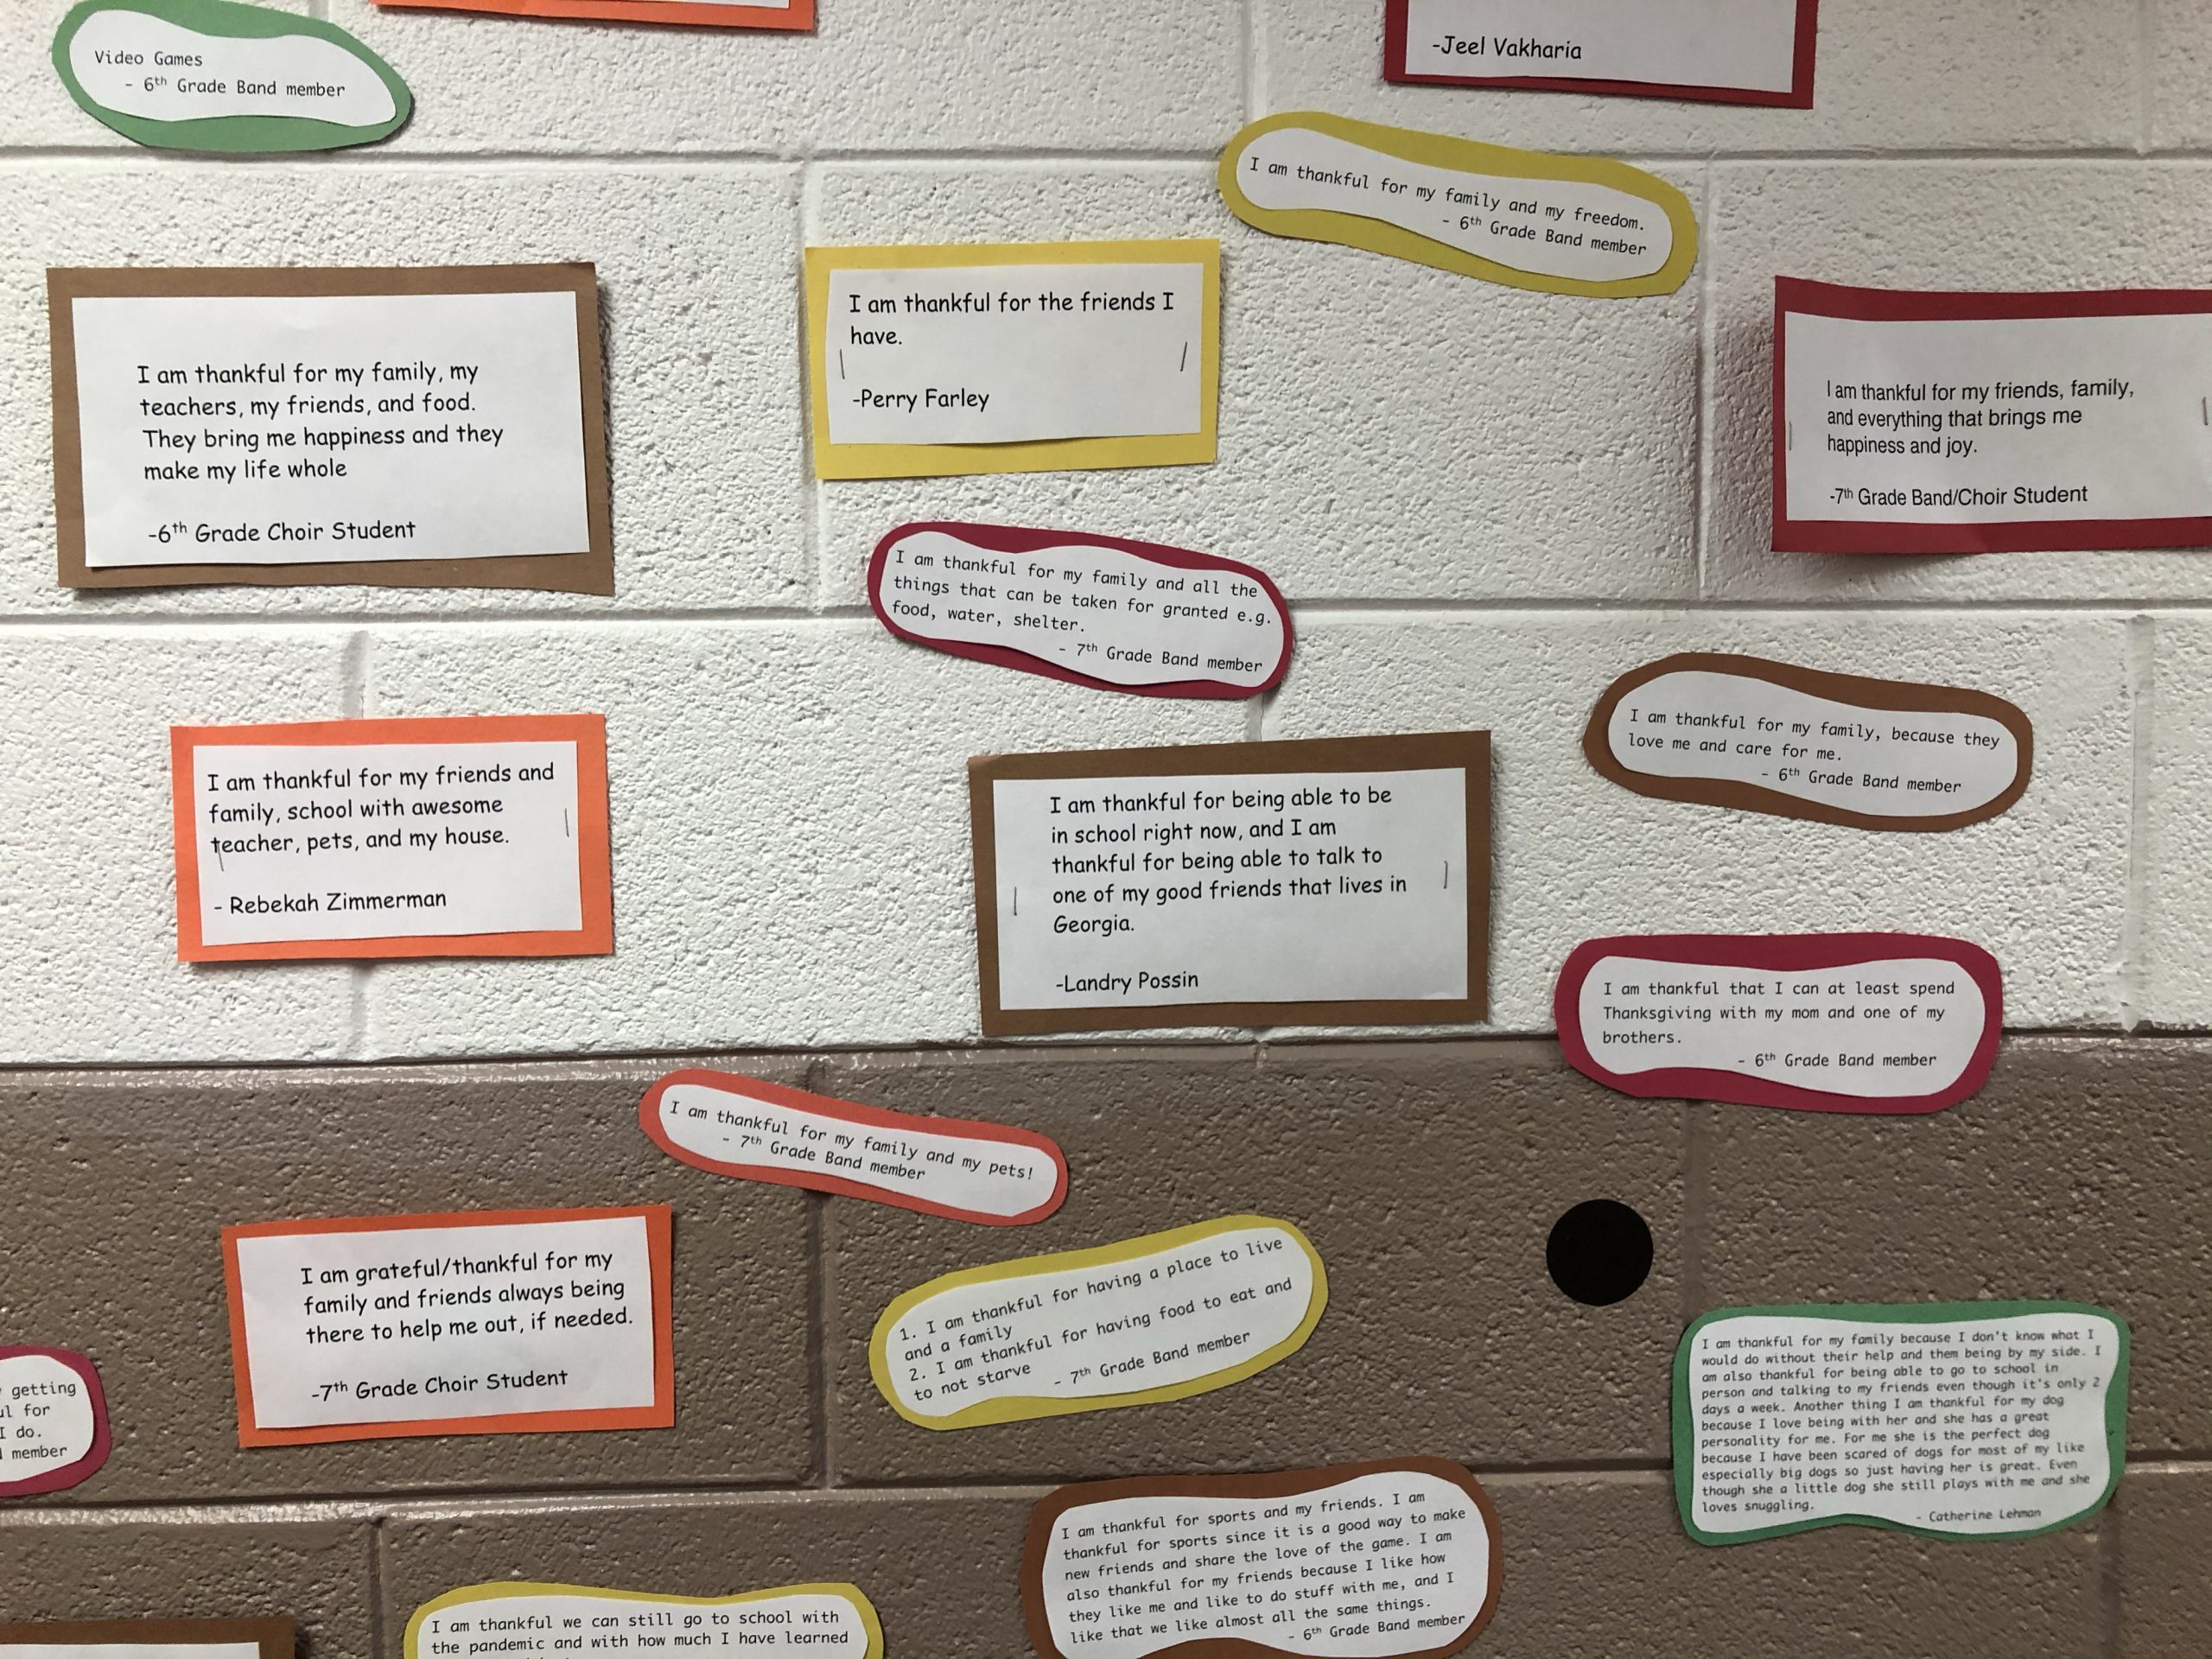 Video Games
- 6th Grade Band member
-Jeel Vakharia
I am thankful for my family and my freedom.
- 6th Grade Band member
I am thankful for my family, my
teachers, my friends, and food.
They bring me happiness and they
make my life whole
-6th Grade Choir Student
I am thankful for the friends I
have.
-Perry Farley
I am thankful for my friends, family,
and everything that brings me
happiness and joy.
-7th Grade Band/Choir Student
I am thankful for my family and all the
things that can be taken for granted e.g.
food, water, shelter.
- 7th Grade Band member
I am thankful for my family, because they
love me and care for me.
- 6th Grade Band member
I am thankful for my friends and
family, school with awesome
teacher, pets, and my house.
- Rebekah Zimmerman
I am thankful for being able to be
in school right now, and I am
thankful for being able to talk to
one of my good friends that lives in
Georgia.
-Landry Possin
I am thankful that I can at least spend
Thanksgiving with my mom and one of my
brothers.
- 6th Grade Band member
I am thankful for my family and my pets!
- 7th Grade Band member
I am grateful/thankful for my
family and friends always being
there to help me out, if needed.
-7th Grade Choir Student
1. I am thankful for having a place to live
and a family
2. I am thankful for having food to eat and
to not starve
- 7th Grade Band member
getting
for
I do.
member
I am thankful for my family because I don't know what I
would do without their help and them being by my side. I
am also thankful for being able to go to school in
person and talking to my friends even though it's only 2
days a week. Another thing I am thankful for my dog
because I love being with her and she has a great
personality for me. For me she is the perfect dog
because I have been scared of dogs for most of my like
especially big dogs so just having her is great. Even
though she a little dog she still plays with me and she
loves snuggling.
- Catherine Lehman
I am thankful for sports and my friends. I am
thankful for sports since it is a good way to make
new friends and share the love of the game. I am
also thankful for my friends because I like how
they like me and like to do stuff with me, and I
like that we like almost all the same things.
- 6th Grade Band member
I am thankful we can still go to school with
the pandemic and with how much I have learned